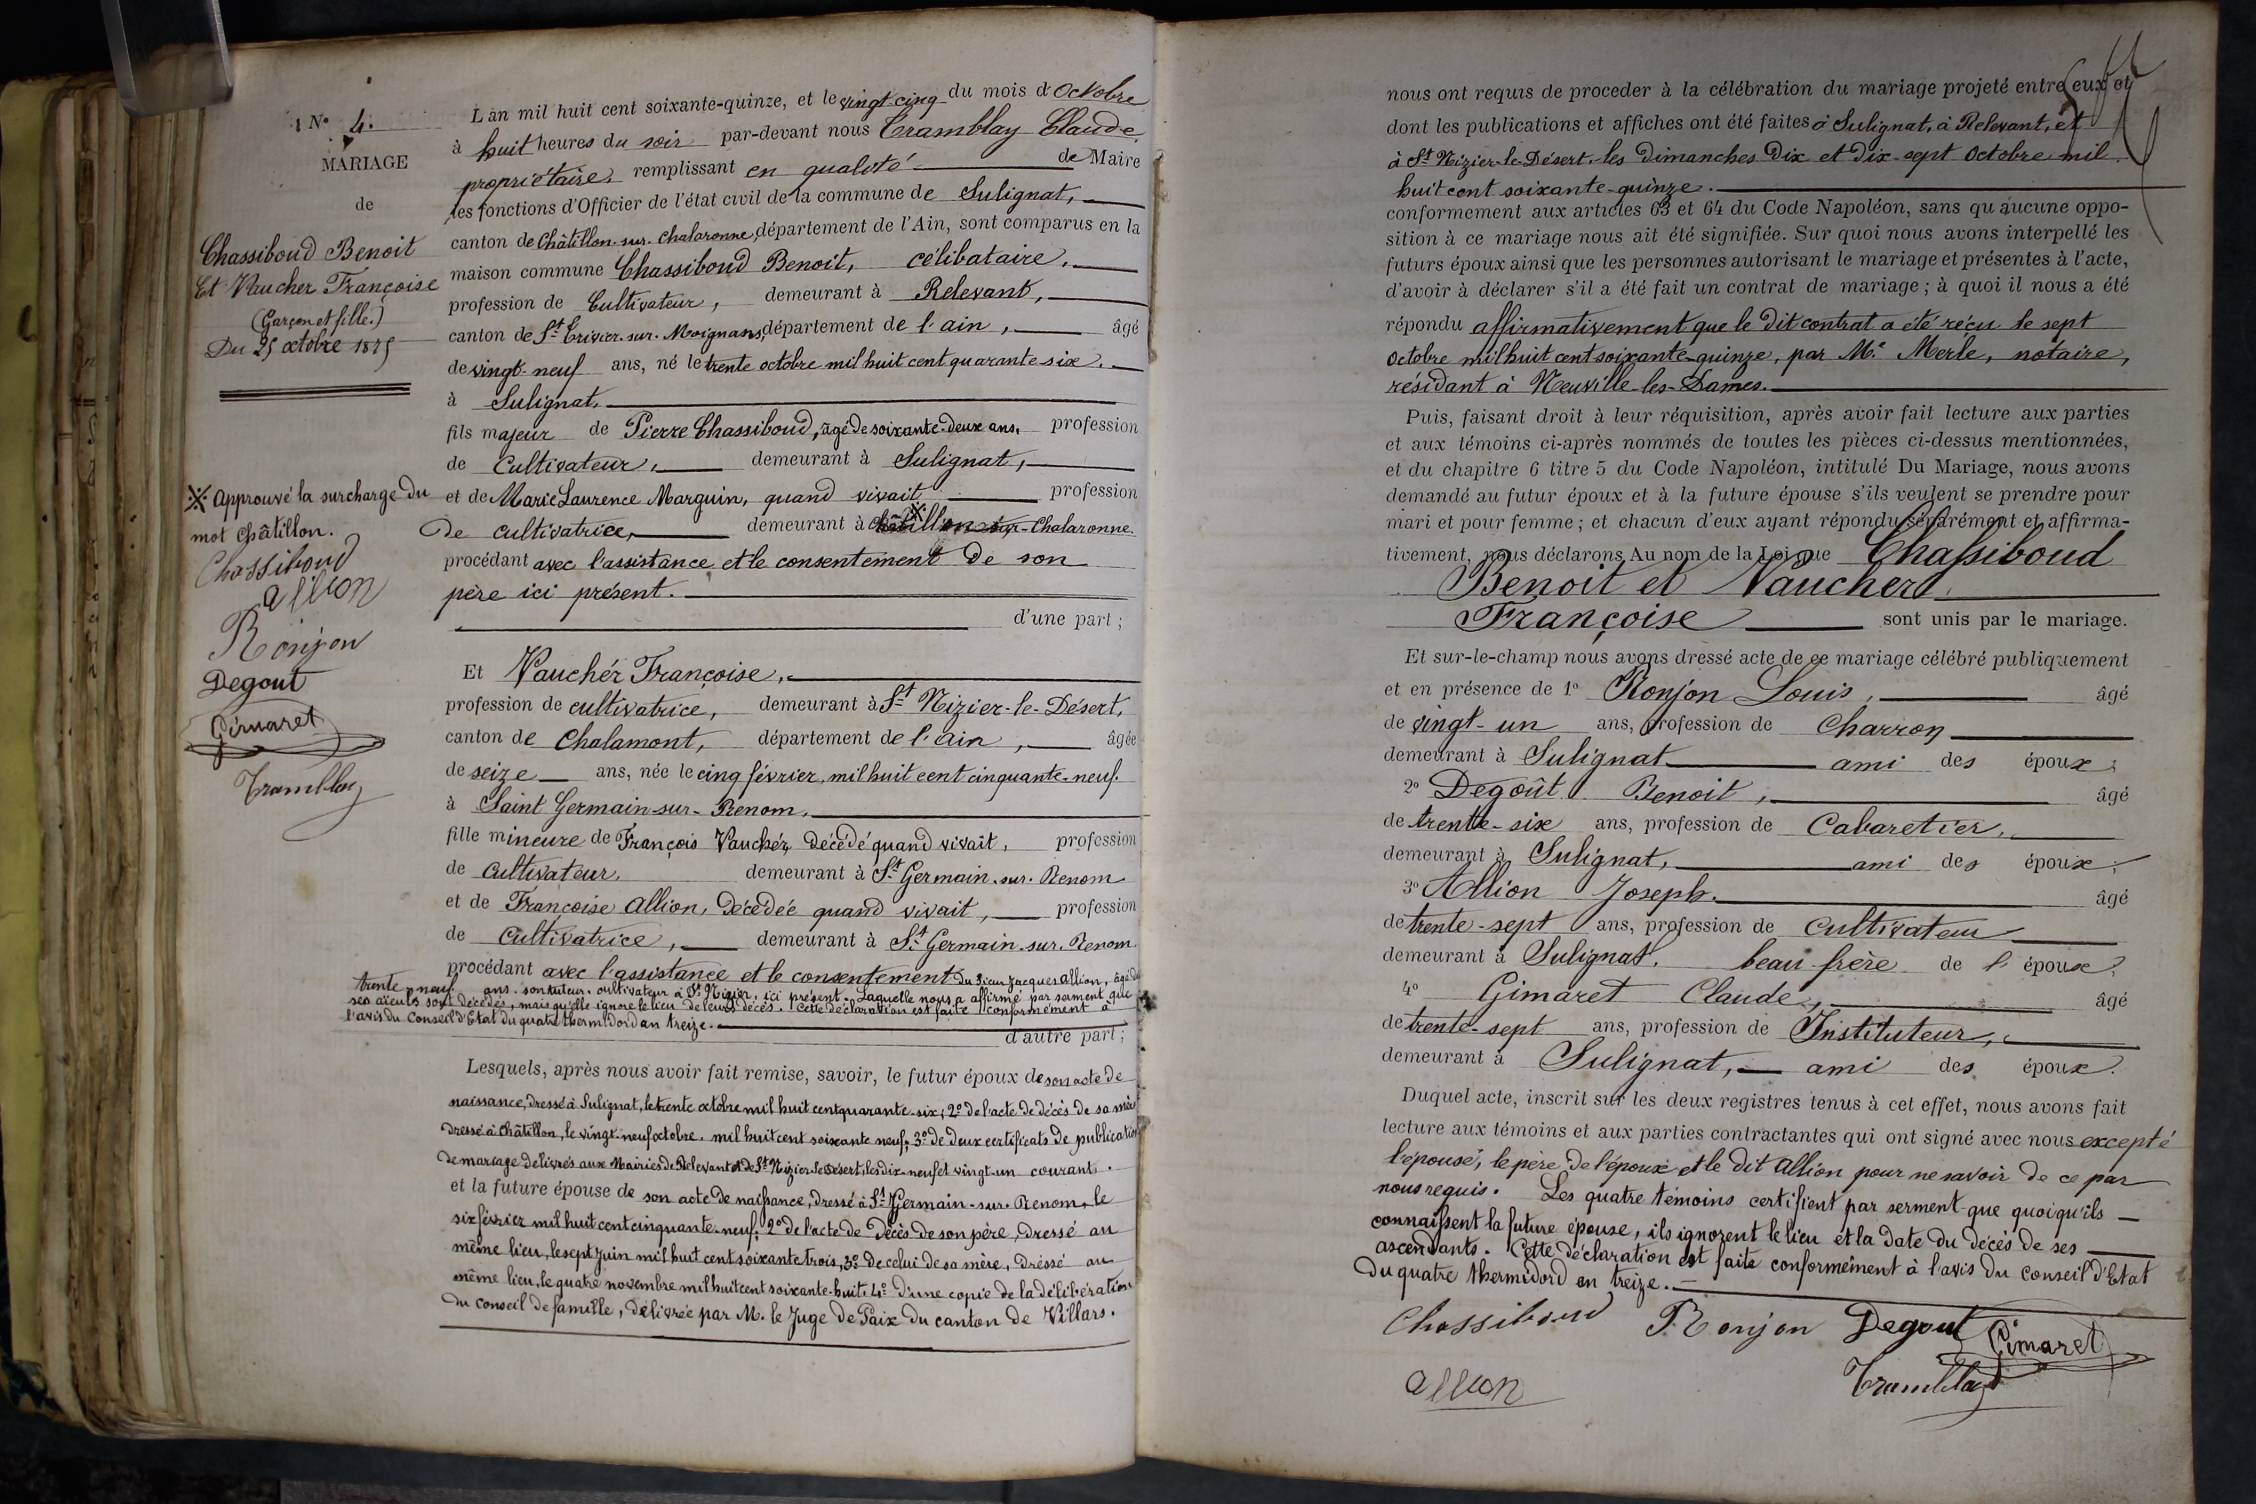 N° 4.
MARIAGE
de
Chassiboud Benoit
Et Vaucher Françoise
(Garçon et fille.)
Du 25 octobre 1875
※ Approuvé la surcharge du
mot Châtillon.
Chassiboud
allion
Ronjon
Degout
Gimaret
Tramblay
L'an mil huit cent soixante-quinze, et le vingt-cinq du mois d'Octobre
à huit heures du soir par-devant nous Tramblay Claude
propriétaire, remplissant en qualité de Maire
les fonctions d'Officier de l'état civil de la commune de Sulignat,
canton de Châtillon-sur-Chalaronne, département de l'Ain, sont comparus en la
maison commune Chassiboud Benoit, célibataire,
profession de Cultivateur, demeurant à Relevant,
canton de St Trivier-sur-Moignans, département de l'ain, âgé
de vingt-neuf ans, né le trente octobre mil huit cent quarante-six.
à Sulignat,
fils majeur de Pierre Chassiboud, âgé de soixante-deux ans, profession
de Cultivateur, demeurant à Sulignat,
et de Marie Laurence Marguin, quand vivait profession
de cultivatrice, demeurant à ※ Châtillon-sur-Chalaronne.
procédant avec l'assistance et le consentement de son
père ici présent.
d'une part ;
Et Vauchér Françoise,
profession de cultivatrice, demeurant à St Nizier-le-Désert,
canton de Chalamont, département de l'ain, âgée
de seize ans, née le cinq février, mil huit cent cinquante-neuf.
à Saint Germain-sur-Renom,
fille mineure de François Vauchér, décédé quand vivait, profession
de cultivateur, demeurant à St Germain-sur-Renom
et de Françoise Allion, décédée quand vivait, profession
de cultivatrice, demeurant à St Germain-sur-Renom
procédant avec l'assistance et le consentement du sieur Jacques Allion, âgé de
trente-neuf ans, son tuteur, cultivateur à St Nizier, ici présent. Laquelle nous a affirmé par serment que
ses aïeuls sont décédés, mais qu'elle ignore le lieu de leurs décès. Cette déclaration est faite conformément à
l'avis du Conseil d'Etat du quatre thermidord an treize.
d'autre part ;
Lesquels, après nous avoir fait remise, savoir, le futur époux de son acte de
naissance, dressé à Sulignat, le trente octobre mil huit cent quarante-six ; 2° de l'acte de décès de sa mère
dressé à Châtillon, le vingt-neuf octobre, mil huit cent soixante neuf ; 3° de deux certificats de publication
de mariage délivrés aux Mairies de Relevant et de St Nizier-le-Désert, les dix-neuf et vingt-un courant.
et la future épouse de son acte de naissance, dressé à St Germain-sur-Renom, le
six février mil huit cent cinquante-neuf ; 2° de l'acte de décès de son père, dressé au
même lieu, le sept juin mil huit cent soixante trois, 3° de celui de sa mère, dressé au
même lieu, le quatre novembre mil huit cent soixante-huit. 4° d'une copie de la délibération
du conseil de famille, délivrée par M. le Juge de Paix du canton de Villars.
nous ont requis de proceder à la célébration du mariage projeté entre eux et
dont les publications et affiches ont été faites à Sulignat, à Relevant, et
à St Nizier-le-Désert, les dimanches dix et dix-sept Octobre mil
huit cent soixante-quinze.
conformement aux articles 63 et 64 du Code Napoléon, sans qu'aucune oppo-
sition à ce mariage nous ait été signifiée. Sur quoi nous avons interpellé les
futurs époux ainsi que les personnes autorisant le mariage et présentes à l'acte,
d'avoir à déclarer s'il a été fait un contrat de mariage ; à quoi il nous a été
répondu affirmativement que le dit contrat a été réçu le sept
octobre mil huit cent soixante-quinze, par Me Merle, notaire,
résidant à Neuville-les-Dames.
Puis, faisant droit à leur réquisition, après avoir fait lecture aux parties
et aux témoins ci-après nommés de toutes les pièces ci-dessus mentionnées,
et du chapitre 6 titre 5 du Code Napoléon, intitulé Du Mariage, nous avons
demandé au futur époux et à la future épouse s'ils veulent se prendre pour
mari et pour femme ; et chacun d'eux ayant répondu séparément et affirma-
tivement, nous déclarons Au nom de la Loi que Chassiboud
Benoit et Vaucher
Françoise sont unis par le mariage.
Et sur-le-champ nous avons dressé acte de ce mariage célébré publiquement
et en présence de 1° Ronjon Louis, âgé
de vingt-un ans, profession de Charron
demeurant à Sulignat ami des époux,
2° Degoût Benoit, âgé
de trente-six ans, profession de Cabaretier,
demeurant à Sulignat, ami des époux,
3° Allion Joseph. âgé
de trente-sept ans, profession de cultivateur
demeurant à Sulignat, beau-frère de l'épouse,
4° Gimaret Claude, âgé
de trente-sept ans, profession de Instituteur,
demeurant à Sulignat, ami des époux.
Duquel acte, inscrit sur les deux registres tenus à cet effet, nous avons fait
lecture aux témoins et aux parties contractantes qui ont signé avec nous excepté
l'épouse, le père de l'époux et le dit Allion pour ne savoir de ce par
nous requis. Les quatre témoins certifient par serment que quoiqu'ils
connaissent la future épouse, ils ignorent le lieu et la date du décès de ses
ascendants. Cette déclaration est faite conformément à l'avis du conseil d'Etat
du quatre thermidord an treize.
Chassiboud Ronjon Degout Gimaret
allion Tramblay